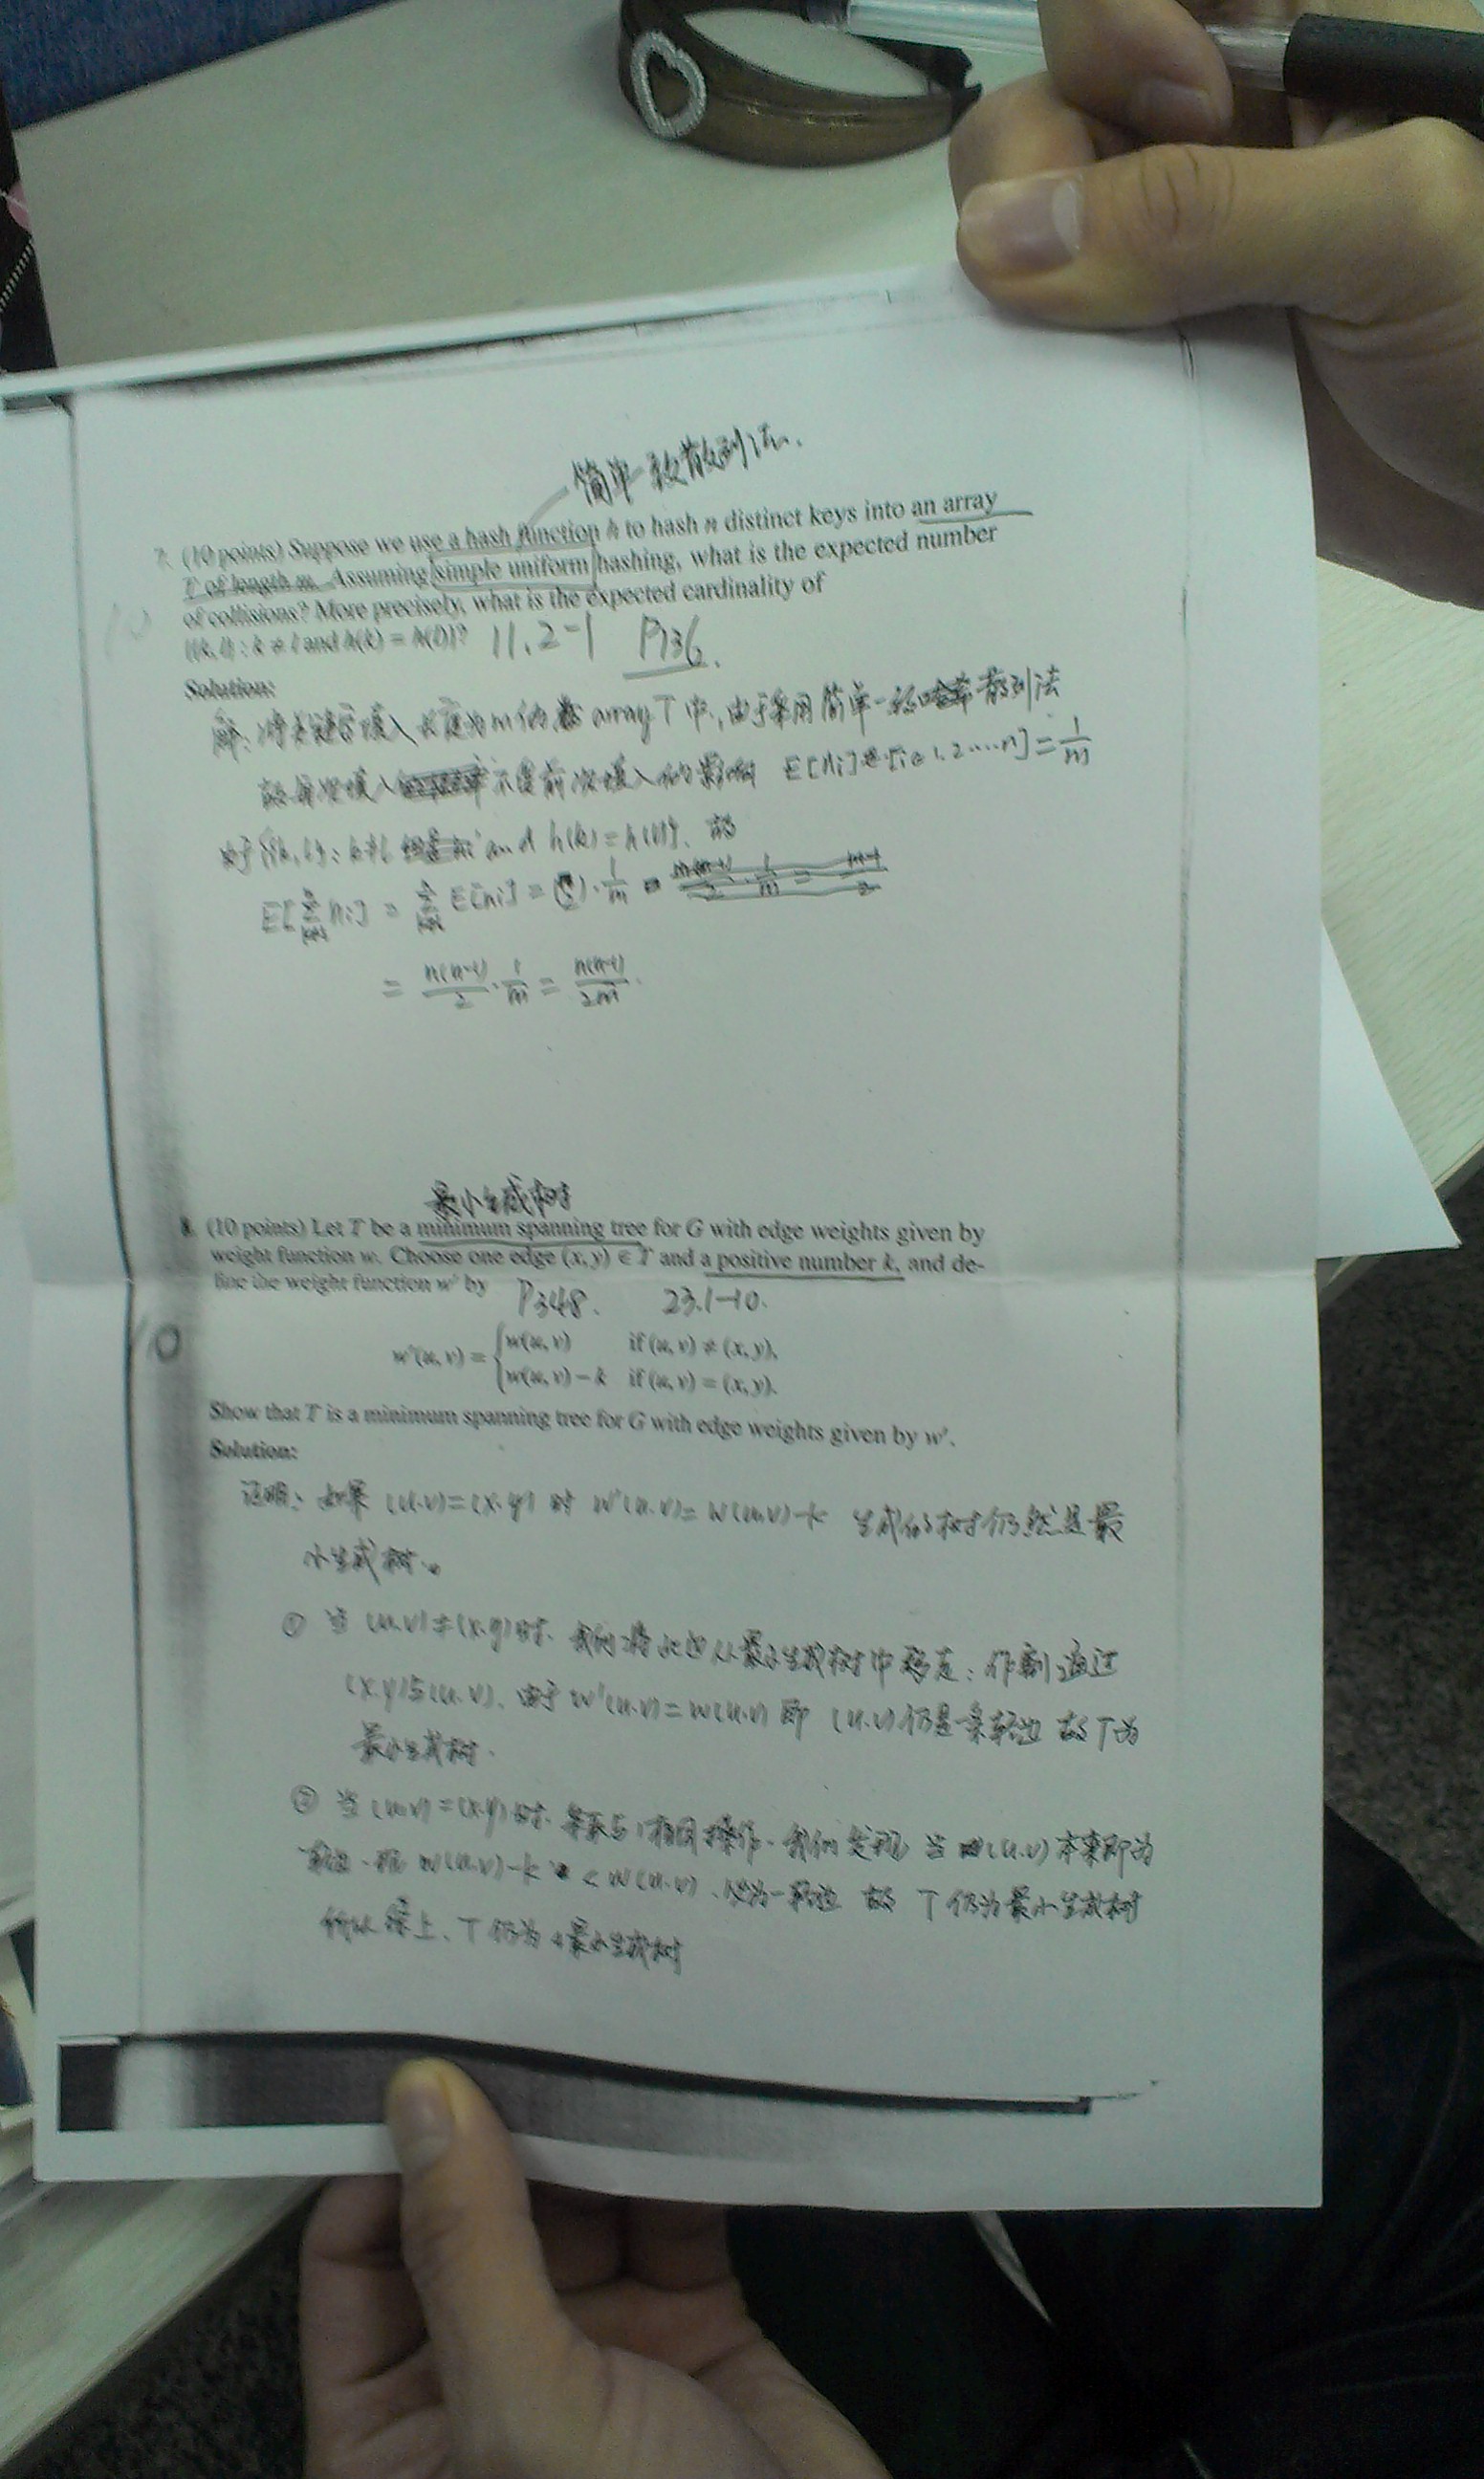 简单一致散列法.
7. (10 points) Suppose we use a hash function h to hash n distinct keys into an array
T of length m. Assuming simple uniform hashing, what is the expected number
of collisions? More precisely, what is the expected cardinality of
{{k, l} : k ≠ l and h(k) = h(l)}? 11.2-1 P136.
Solution:
解: 将关键字填入长度为m的 array T 中, 由于采用简单一致 散列法
故每次填入 不受前次填入的影响 E[ni] [i∈1,2....n] = 1/m
由于{{k, l}: k≠l and h(k)=h(l)}. 故
= n(n-1)/2 · 1/m = n(n-1)/2m.
最小生成树
8. (10 points) Let T be a minimum spanning tree for G with edge weights given by
weight function w. Choose one edge (x, y) ∈ T and a positive number k, and de-
fine the weight function w' by P348. 23.1-10.
10
w'(u, v) = { w(u, v) if (u, v) ≠ (x, y),
w(u, v) − k if (u, v) = (x, y).
Show that T is a minimum spanning tree for G with edge weights given by w'.
Solution:
证明: 如果 (u.v)=(x.y) 时 w'(u.v)=w(u.v)-k 生成的树仍然是最
小生成树。
① 当 (u.v)≠(x.y)时. 我们将此边从最小生成树中移走: 作割通过
(x.y)与(u.v). 由于 w'(u.v)=w(u.v) 即 (u.v)仍是一条轻边 故T为
最小生成树.
② 当 (u.v)=(x.y)时. 采取与1相同操作. 我们发现 当 (u.v)本来即为
轻边. 现 w(u.v)-k < w(u.v). 必为一轻边 故 T仍为最小生成树
所以综上、T仍为 最小生成树